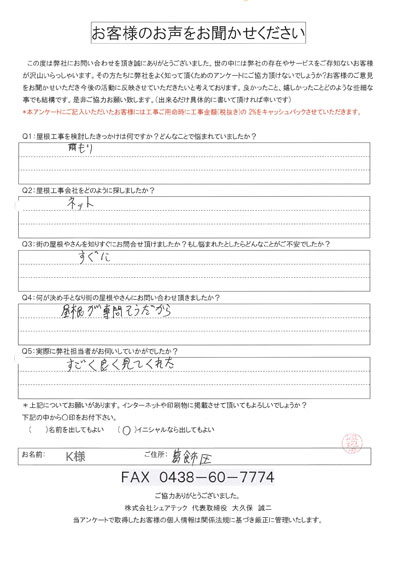 お客様のお声をお聞かせください
この度は弊社にお問い合わせを頂き誠にありがとうございました。世の中には弊社の存在やサービスをご存知ないお客様
が沢山いらっしゃいます。その方たちに弊社をよく知って頂くためのアンケートにご協力頂けないでしょうか?お客様のご意見
をお聞かせいただき今後の活動に反映させていただきたいと考えております。良かったこと、嬉しかったことどのような些細な
事でも結構です。是非ご協力お願い致します。(出来るだけ具体的に書いて頂ければ幸いです)
*本アンケートにご記入いただいたお客様には工事ご用命時に工事金額(税抜き)の 2%をキャッシュバックさせていただきます。
Q1:屋根工事を検討したきっかけは何ですか?どんなことで悩まれていましたか?
雨もり
Q2:屋根工事会社をどのように探しましたか?
ネット
Q3:街の屋根やさんを知りすぐにお問合せ頂けましたか?もし悩まれたとしたらどんなことがご不安でしたか?
すぐに
Q4:何が決め手となり街の屋根やさんにお問い合わせ頂きましたか?
屋根が専門そうだから
Q5:実際に弊社担当者がお伺いしていかがでしたか?
すごく良く見てくれた
*上記についてお願いがあります。インターネットや印刷物に掲載させて頂いてもよろしいでしょうか?
下記の中から〇印をお付下さい。
( )名前を出してもよい (〇)イニシャルなら出してもよい
お名前: K様 ご住所: 葛飾区
FAX 0438-60-7774
ご協力ありがとうございました。
株式会社シェアテック 代表取締役 大久保 誠二
当アンケートで取得したお客様の個人情報は関係法規に基づき厳正に管理いたします。